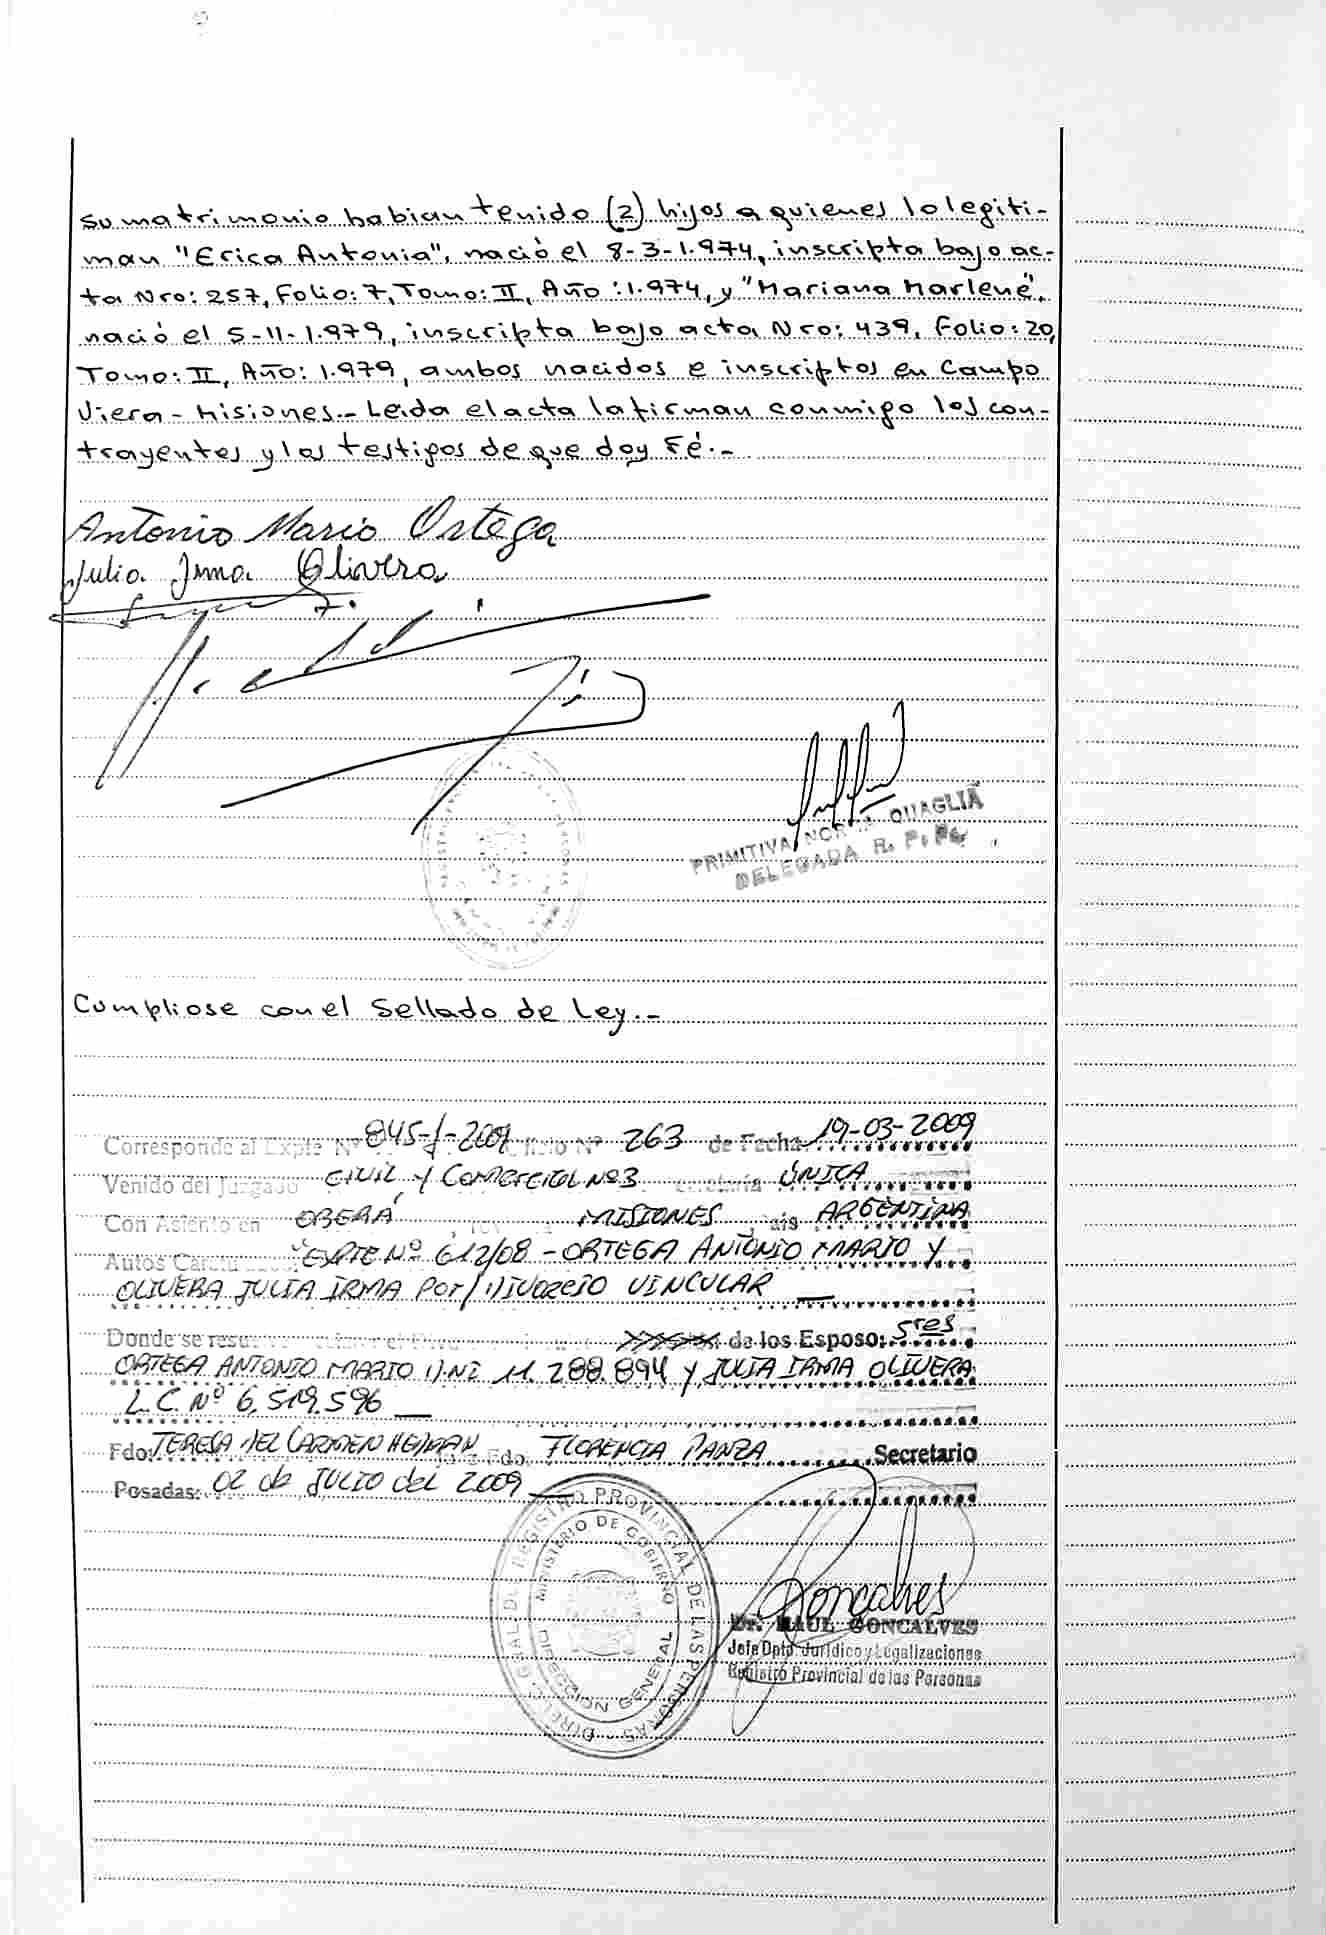 su matrimonio habian tenido (2) hijos a quienes lo legiti-
man "Erica Antonia", nació el 8-3-1.974, inscripta bajo ac-
ta Nro: 257, Folio: 7, Tomo: II, Año: 1.974, y "Mariana Marlene",
nació el 5-11-1.979, inscripta bajo acta Nro: 439, Folio: 20,
Tomo: II, Año: 1.979, ambos nacidos e inscriptos en Campo
Viera - Misiones.- Leida el acta la firman conmigo los con-
trayentes y los testigos de que doy Fé.-
Antonio Mario Ortega
Julia Irma Olivera
PRIMITIVA NORMA QUAGLIA
DELEGADA R. P. Ps.
Cumpliose con el Sellado de Ley.-
Corresponde al Expte Nº 845-J-2009 Oficio Nº 263 de Fecha 19-03-2009
Venido del Juzgado CIVIL y COMERCIAL Nº 3 ÚNICA
Con Asiento en OBERÁ MISIONES País ARGENTINA
Autos Caratu EXPTE Nº 612/08 - ORTEGA ANTONIO MARIO Y
OLIVERA JULIA IRMA POR/ DIVORCIO VINCULAR
Donde se resu de los Esposo: Sres
ORTEGA ANTONIO MARIO DNI 11.288.894 y JULIA IRMA OLIVERA
L.C. Nº 6.519.596
Fdo: TERESA DEL CARMEN Fdo. FLORENCIA PANZA Secretario
Posadas: 02 de JULIO del 2009
DIREC. GRAL. DE REGISTRO PROVINCIAL DE LAS PERSONAS
MINISTERIO DE GOBIERNO
DIRECCION GENERAL
Goncalves
Dr. RAUL GONCALVES
Jefe Dpto. Jurídico y Legalizaciones
Registro Provincial de las Personas